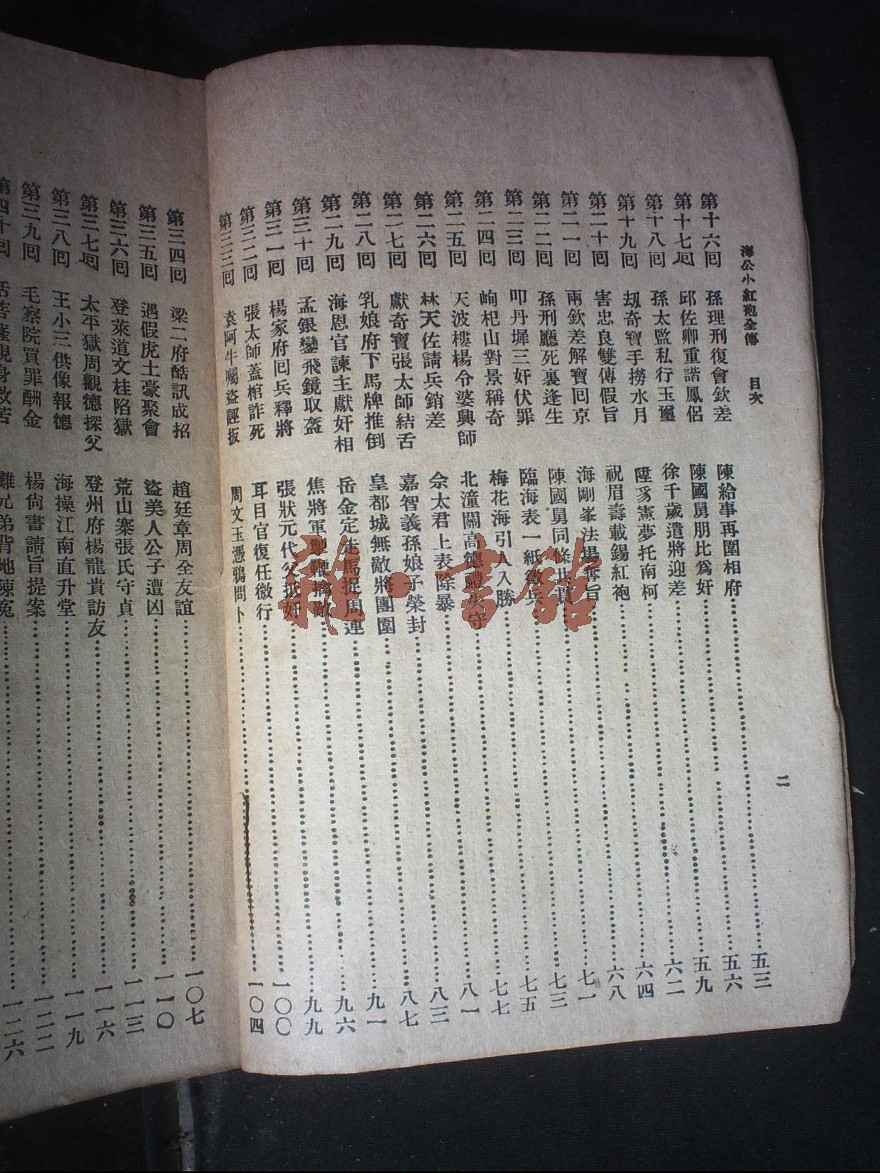 海公小紅袍全傳　目次　二
第十六回　孫理刑復會欽差　陳給事再圍相府　五三
第十七回　邱佐卿重諧鳳侶　陳國舅朋比爲奸　五六
第十八回　孫太監私行玉璽　徐千歲遣將迎差　五九
第十九回　刼奇寶手撈水月　夢托南柯　六二
第二十回　害忠良雙傳假旨　祝眉壽載錫紅袍　六四
第二一回　兩欽差解寶回京　海剛峯法場　旨　六八
第二二回　孫刑廳死裏逢生　陳國舅同條共貫　七一
第二三回　叩丹墀三奸伏罪　臨海表一紙　兵　七三
第二四回　峋杞山對景稱奇　梅花海引人入勝　七五
第二五回　天波樓楊令婆興師　北潼關高德　守　七七
第二六回　林天佐請兵銷差　佘太君上表除暴　八一
第二七回　獻奇寶張太師結舌　嘉智義孫娘子榮封　八三
第二八回　乳娘府下馬牌推倒　皇都城無敵將團圍　八七
第二九回　海恩官諫主獻奸相　岳金定走馬捉周連　九一
第三十回　孟銀鑾飛鏡取盔　焦將軍　鞭擒敵　九六
第三一回　楊家府回兵釋將　張狀元代公　奸　九九
第三二回　張太師蓋棺詐死　耳目官復任微行　一〇〇
第三三回　袁阿牛囑盜誣扳　周文玉憑鴉問卜　一〇四
第三四回　梁二府酷訊成招　趙廷章周全友誼　一〇七
第三五回　遇假虎土豪聚會　盜美人公子遭凶　一一〇
第三六回　登萊道文桂陷獄　荒山寨張氏守貞　一一三
第三七回　太平獄周觀德探父　登州府楊龍貴訪友　一一六
第三八回　王小三供像報德　海操江南直升堂　一一九
第三九回　毛察院買罪酬金　楊尙書請旨提案　一二二
第四十回　活菩薩現身救苦　難兄弟背地陳冤　一二六
龍一書館